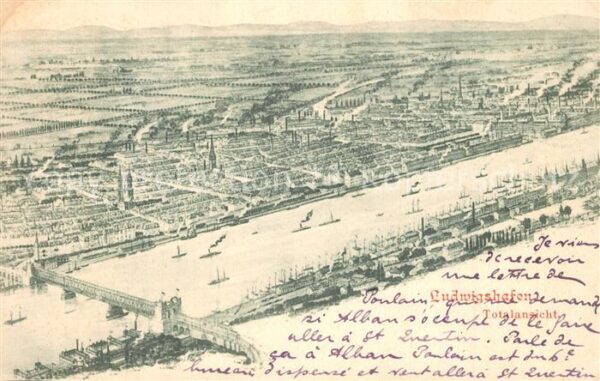 Je viens
de recevoir
une lettre de
Ludwigshafen
Totalansicht.
Poulain qui me demande
si Alban s'occupe de le faire
aller à St Quentin. Parle de
ça à Alban Poulain est du 6e
bureau dispensé et veut aller à St Quentin